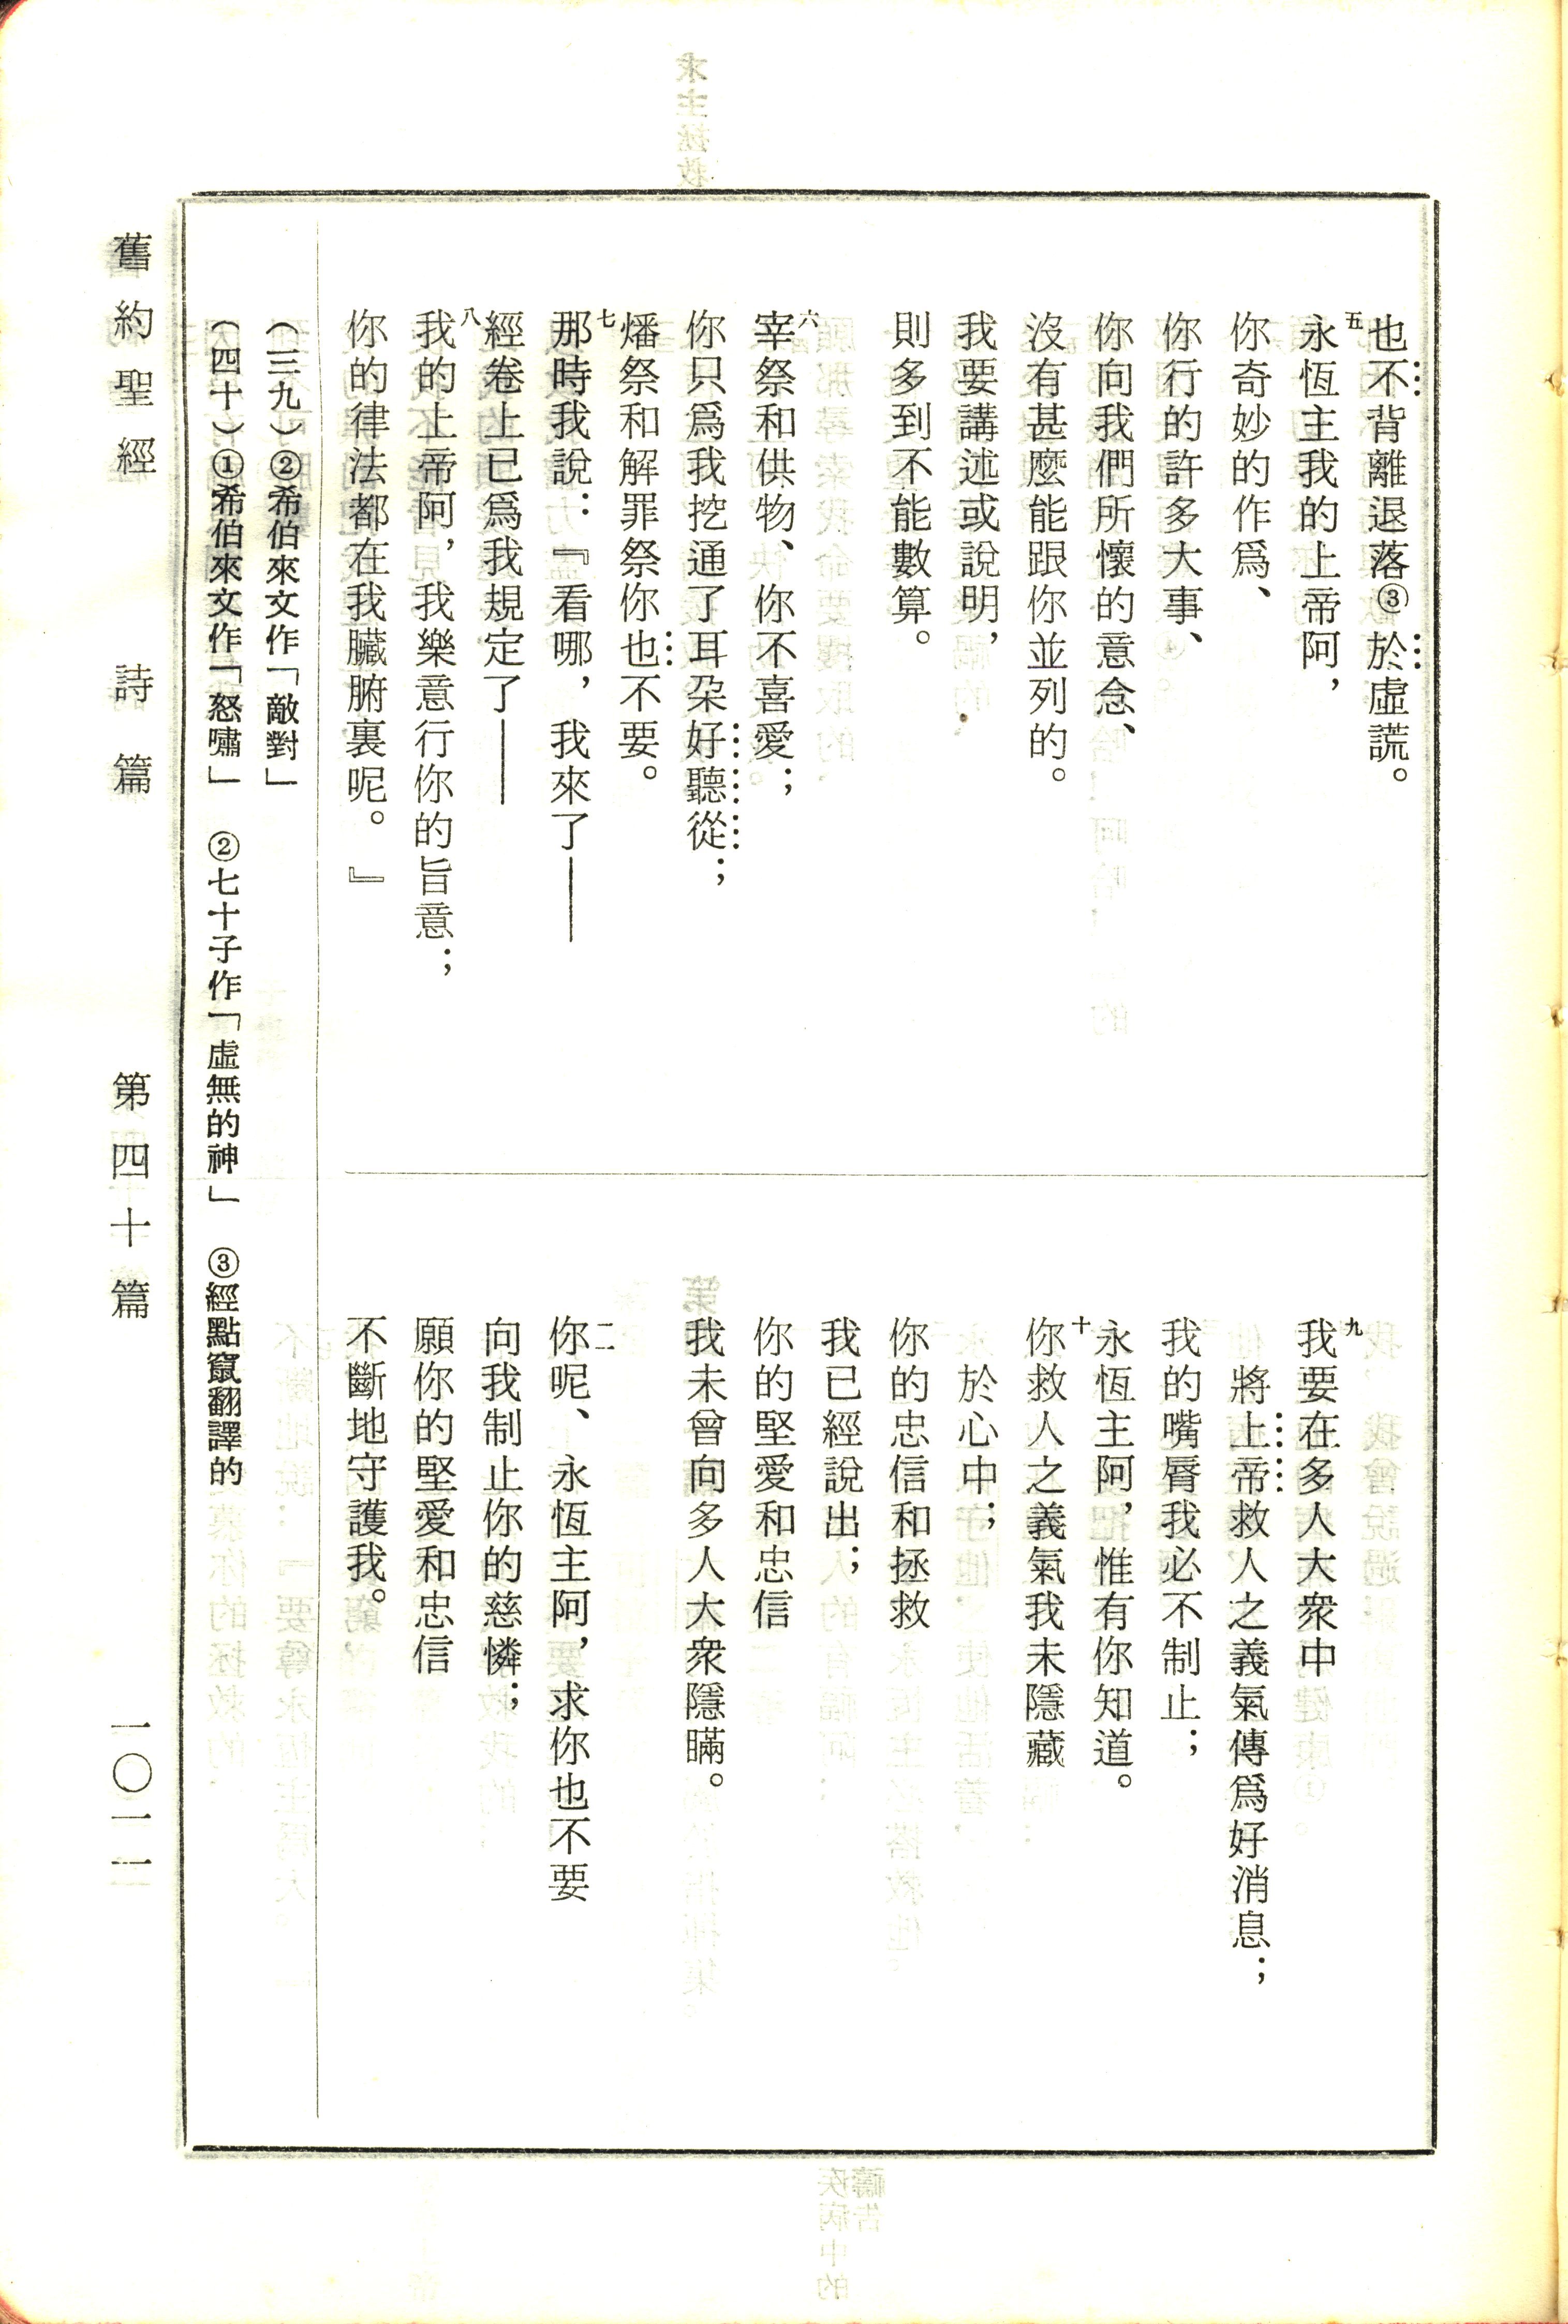 也不背離退落③於虛謊。
五永恆主我的上帝阿，
你奇妙的作爲、
你行的許多大事、
你向我們所懷的意念、
沒有甚麼能跟你並列的。
我要講述或說明，
則多到不能數算。
六宰祭和供物、你不喜愛；
你只爲我挖通了耳朶好聽從；
燔祭和解罪祭你也不要。
七那時我說：『看哪，我來了——
經卷上已爲我規定了——
八我的上帝阿，我樂意行你的旨意；
你的律法都在我臟腑裏呢。』
九我要在多人大衆中
將上帝救人之義氣傳爲好消息；
我的嘴脣我必不制止；
永恆主阿，惟有你知道。
十你救人之義氣我未隱藏
於心中；
你的忠信和拯救
我已經說出；
你的堅愛和忠信
我未曾向多人大衆隱瞞。
一一你呢、永恆主阿，求你也不要
向我制止你的慈憐；
願你的堅愛和忠信
不斷地守護我。
（三九）②希伯來文作「敵對」
（四十）①希伯來文作「怒嘯」　②七十子作「虛無的神」　③經點竄翻譯的
舊約聖經　詩篇　第四十篇　一〇一二